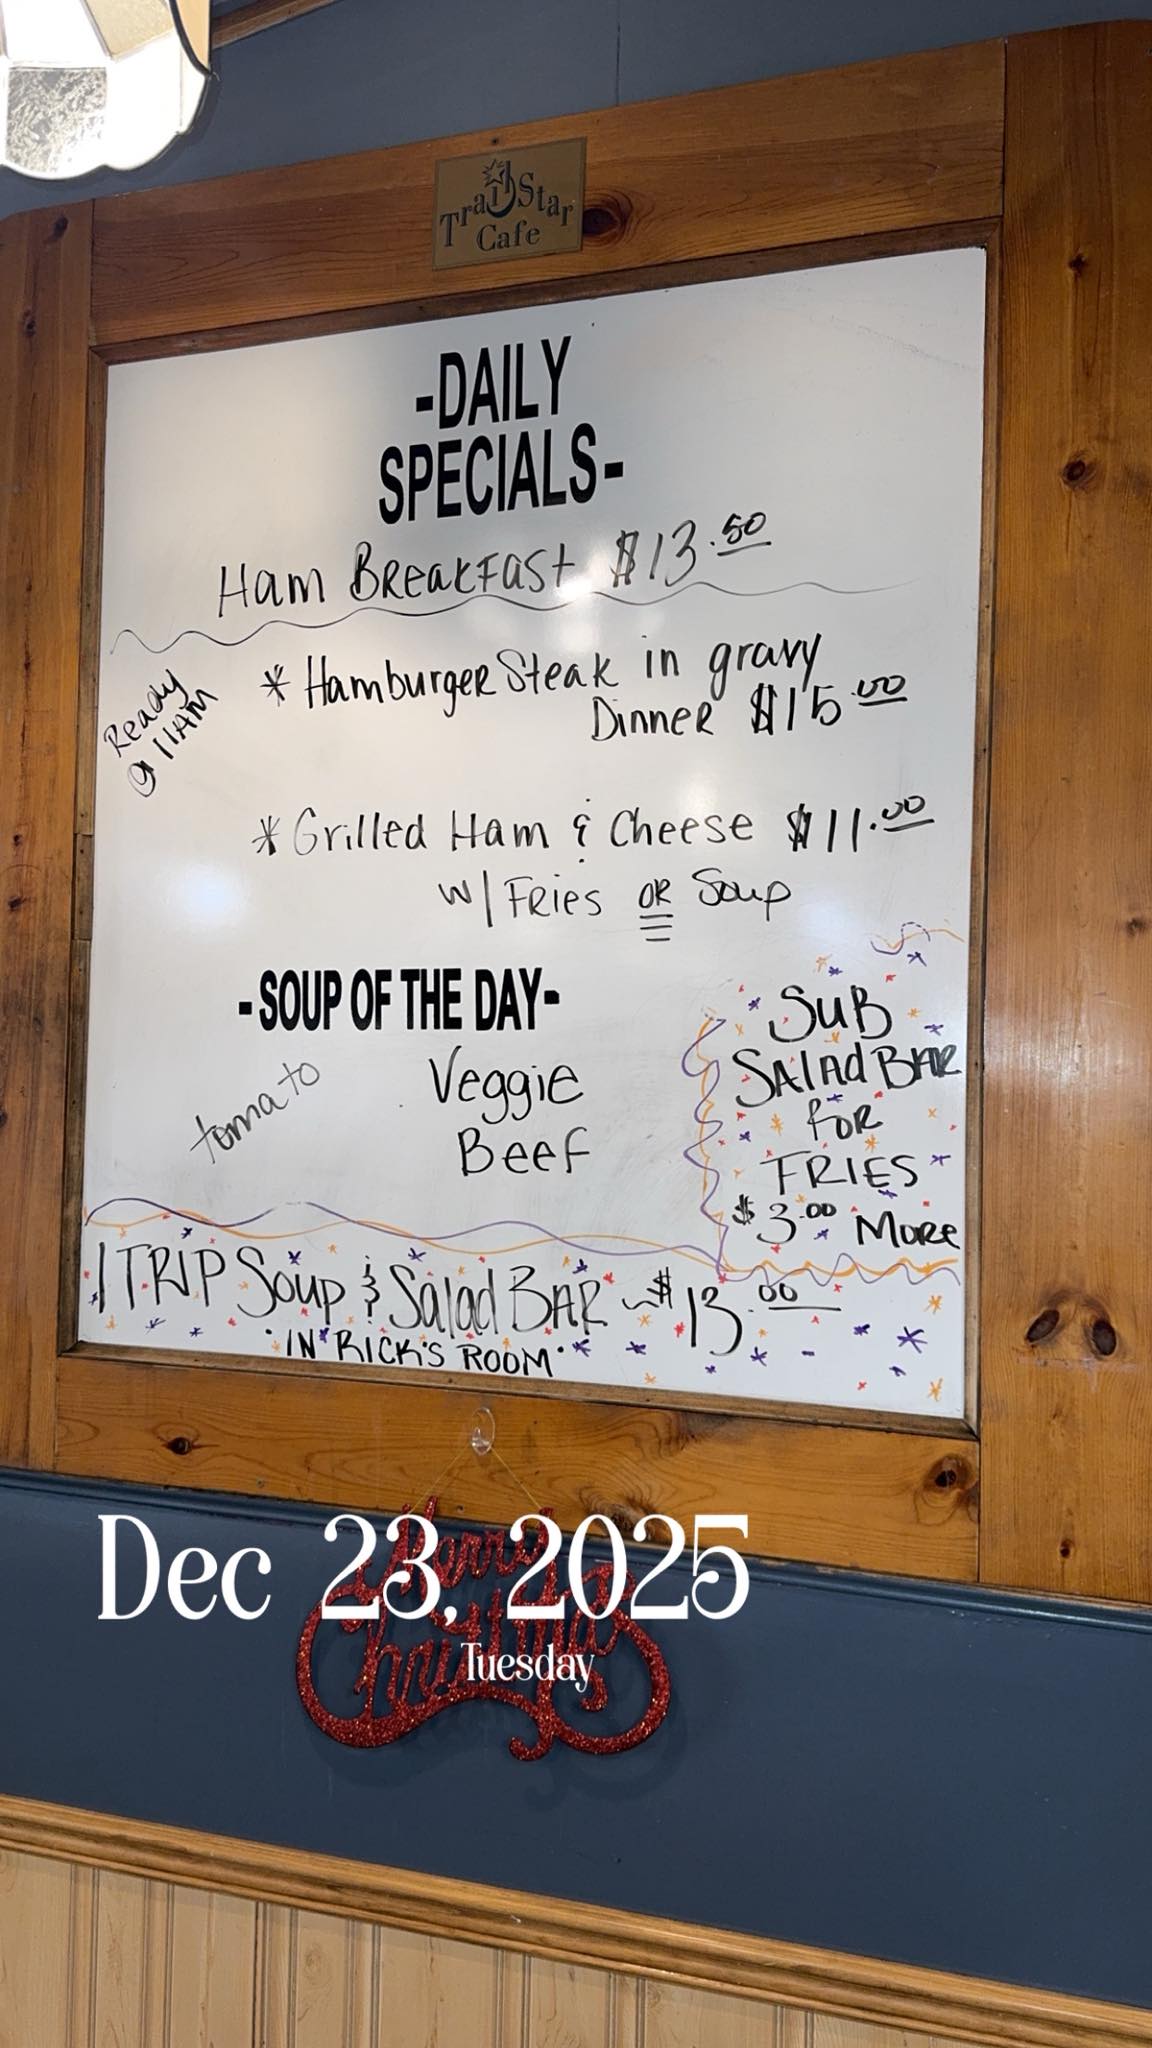 Trail Star
Cafe
-DAILY
SPECIALS-
Ham BREAKFAST $13.50
Ready
@ 11AM
* HamburgeR Steak in gravy
DinneR $15.00
* Grilled Ham & Cheese $11.00
w/ FRies OR Soup
-SOUP OF THE DAY-
tomato
Veggie
Beef
SUB
SAlAd BAR
FOR
FRIES
$3.00 MORE
1 TRIP Soup & Salad BAR ~ $13.00
"IN RICK'S ROOM"
Merry
Christmas
Dec 23, 2025
Tuesday